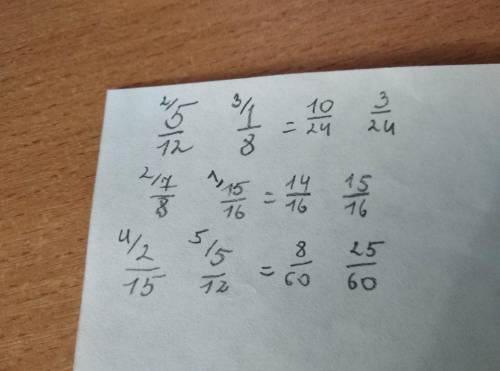 2/ 5/12 3/ 1/8 = 10/24 3/24
2/ 7/8 1/ 15/16 = 14/16 15/16
4/ 2/15 5/ 5/12 = 8/60 25/60